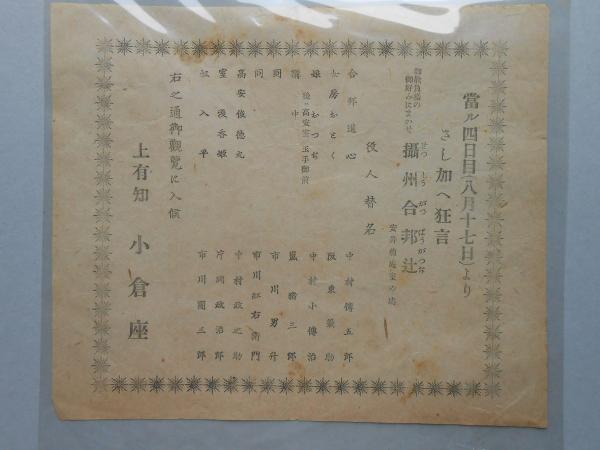 當ル四日目(八月十七日)より
さし加へ狂言
御好みにまかせ
攝州合邦辻
せつしうがつぱうがつぢ
安井
の場
役人替名
合邦道心 中村傳五郎
女房おとく 阪東簑助
娘おつぢ 中村小傳治
後ニ高安室玉手御前
講中 嵐 三郎
同 市川男升
同 市川紅右衛門
高安俊徳丸 中村政之助
室浅香姫 片岡政治郎
奴入平 市川團三郎
右之通御觀覧に入候
上有知 小倉座